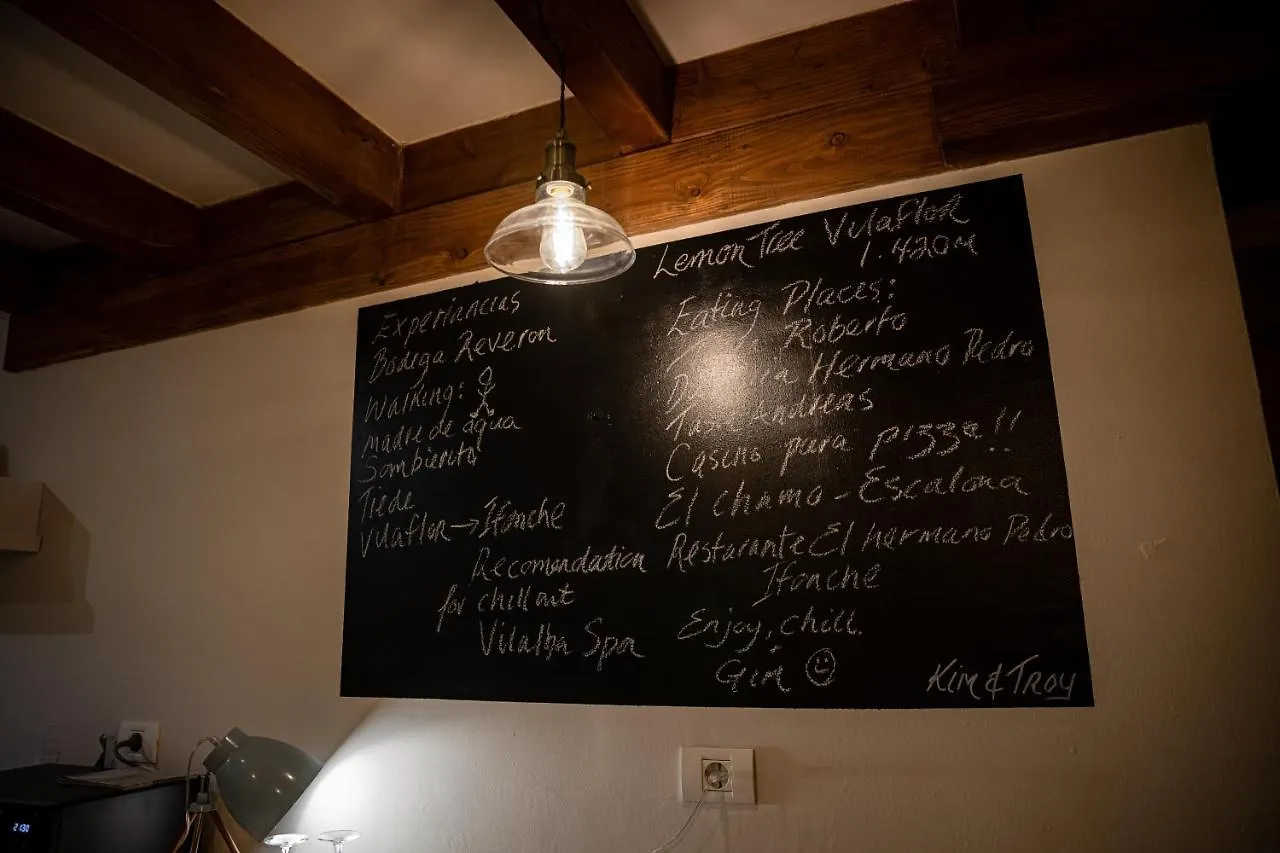 Experiancias
Bodega Reveron
Walking:
madre de agua
Sombierito
Tiede
Vilaflor → Ifonche
Recomendation
for chill out
Vilalba Spa
Lemon Tree Vilaflor
1.420m
Eating Places:
Roberto
Hermano Pedro
Tasca Andreas
Casino pura pizza!!
El chamo - Escalona
Resturante El hermano Pedro
Ifonche
Enjoy, chill.
Gin
Kim & Troy
2130